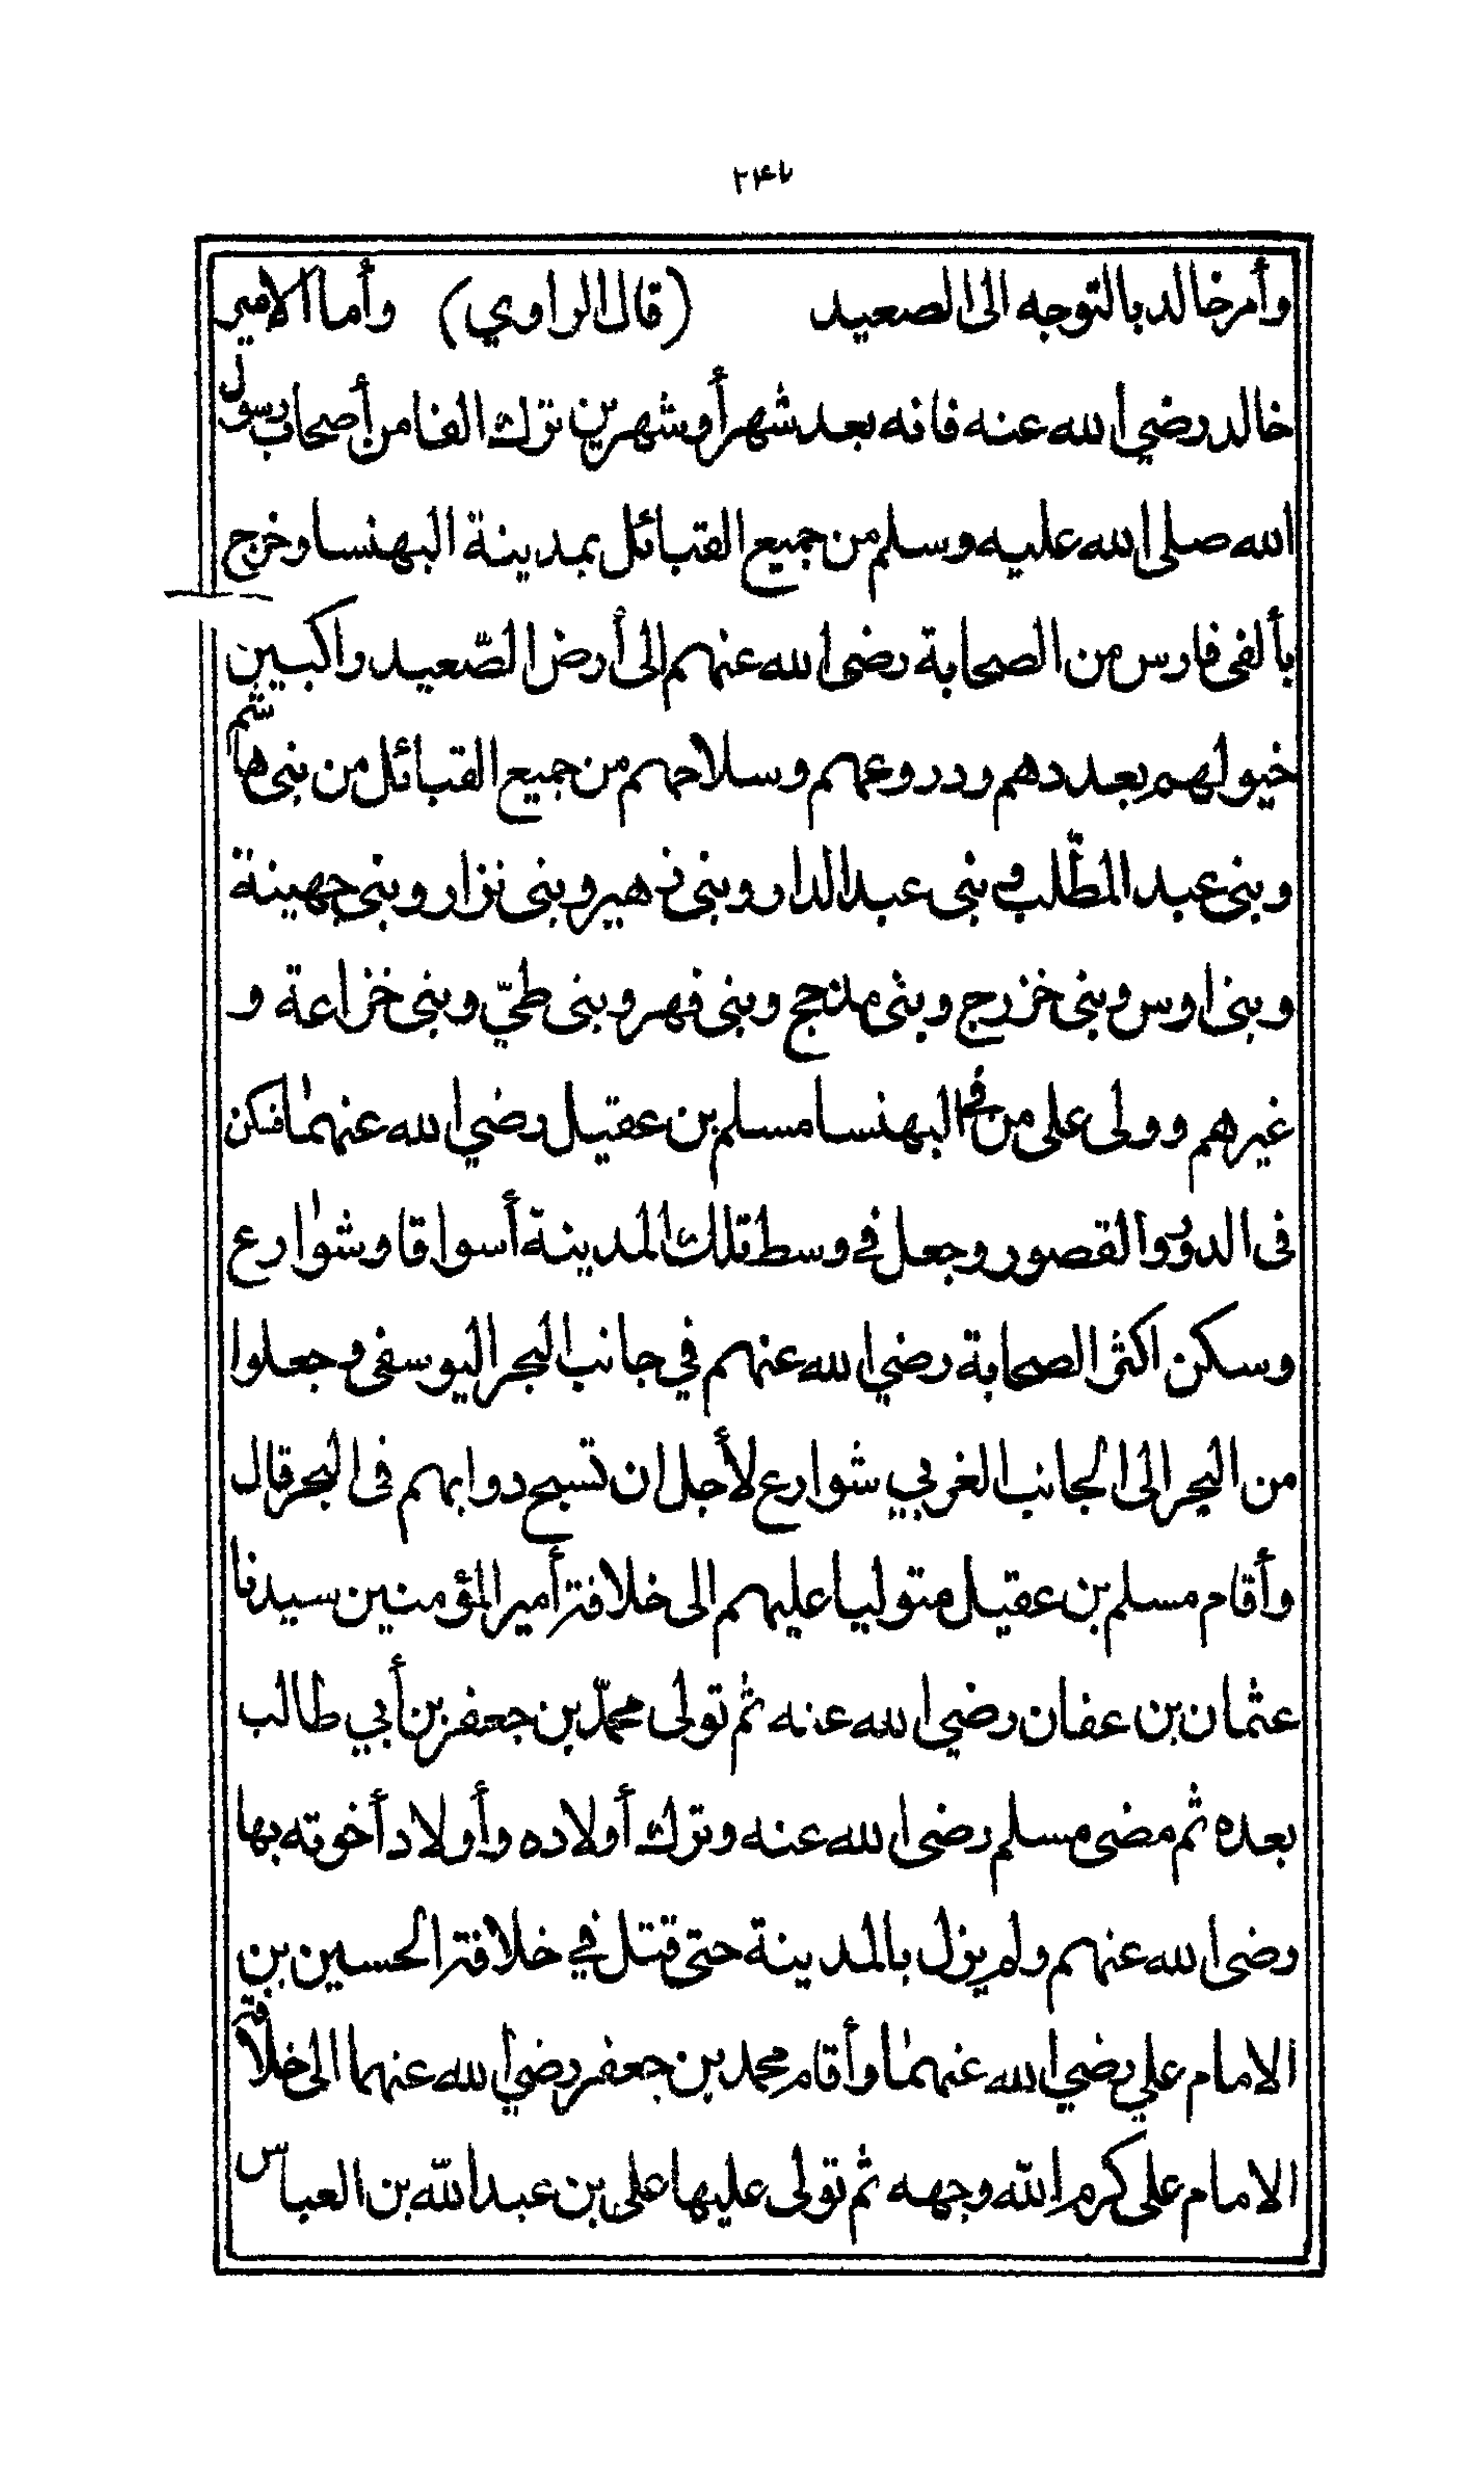 وأمر خالد بالتوجه الى الصعيد (قال الراوي) وأما الامير
خالد رضي الله عنه فانه بعد شهر أو شهرين ترك الفا من أصحاب رسول
الله صلى الله عليه وسلم من جميع القبائل بمدينة البهنسا وخرج
بألفى فارس من الصحابة رضى الله عنهم الى أرض الصّعيد راكبين
خيولهم بعددهم ودروعهم وسلاحهم من جميع القبائل من بنى هاشم
وبنى عبد المطّلب وبنى عبد الدار وبنى زهير وبنى نزار وبنى جهينة
وبنى اوس وبنى خزرج وبنى مذحج وبنى فهر وبنى طيّ وبنى خزاعة و
غيرهم وولى على من في البهنسا مسلم بن عقيل رضي الله عنهما فسكن
فى الدور والقصور وجعل في وسط تلك المدينة أسواقا وشوارع
وسكن اكثر الصحابة رضي الله عنهم في جانب البحر اليوسفى وجعلوا
من البحر الى الجانب الغربي شوارع لأجل ان تسبح دوابهم فى البحر قال
وأقام مسلم بن عقيل متوليا عليهم الى خلافة أمير المؤمنين سيدنا
عثمان بن عفان رضي الله عنه ثم تولى محمّد بن جعفر بن أبي طالب
بعده ثم مضى مسلم رضى الله عنه وترك أولاده وأولاد أخوته بها
رضى الله عنهم ولم يزل بالمدينة حتى قتل في خلافة الحسين بن
الامام علي رضي الله عنهما وأقام محمد بن جعفر رضي الله عنهما الى خلافة
الامام على كرم الله وجهه ثم تولى عليها على بن عبد الله بن العباس